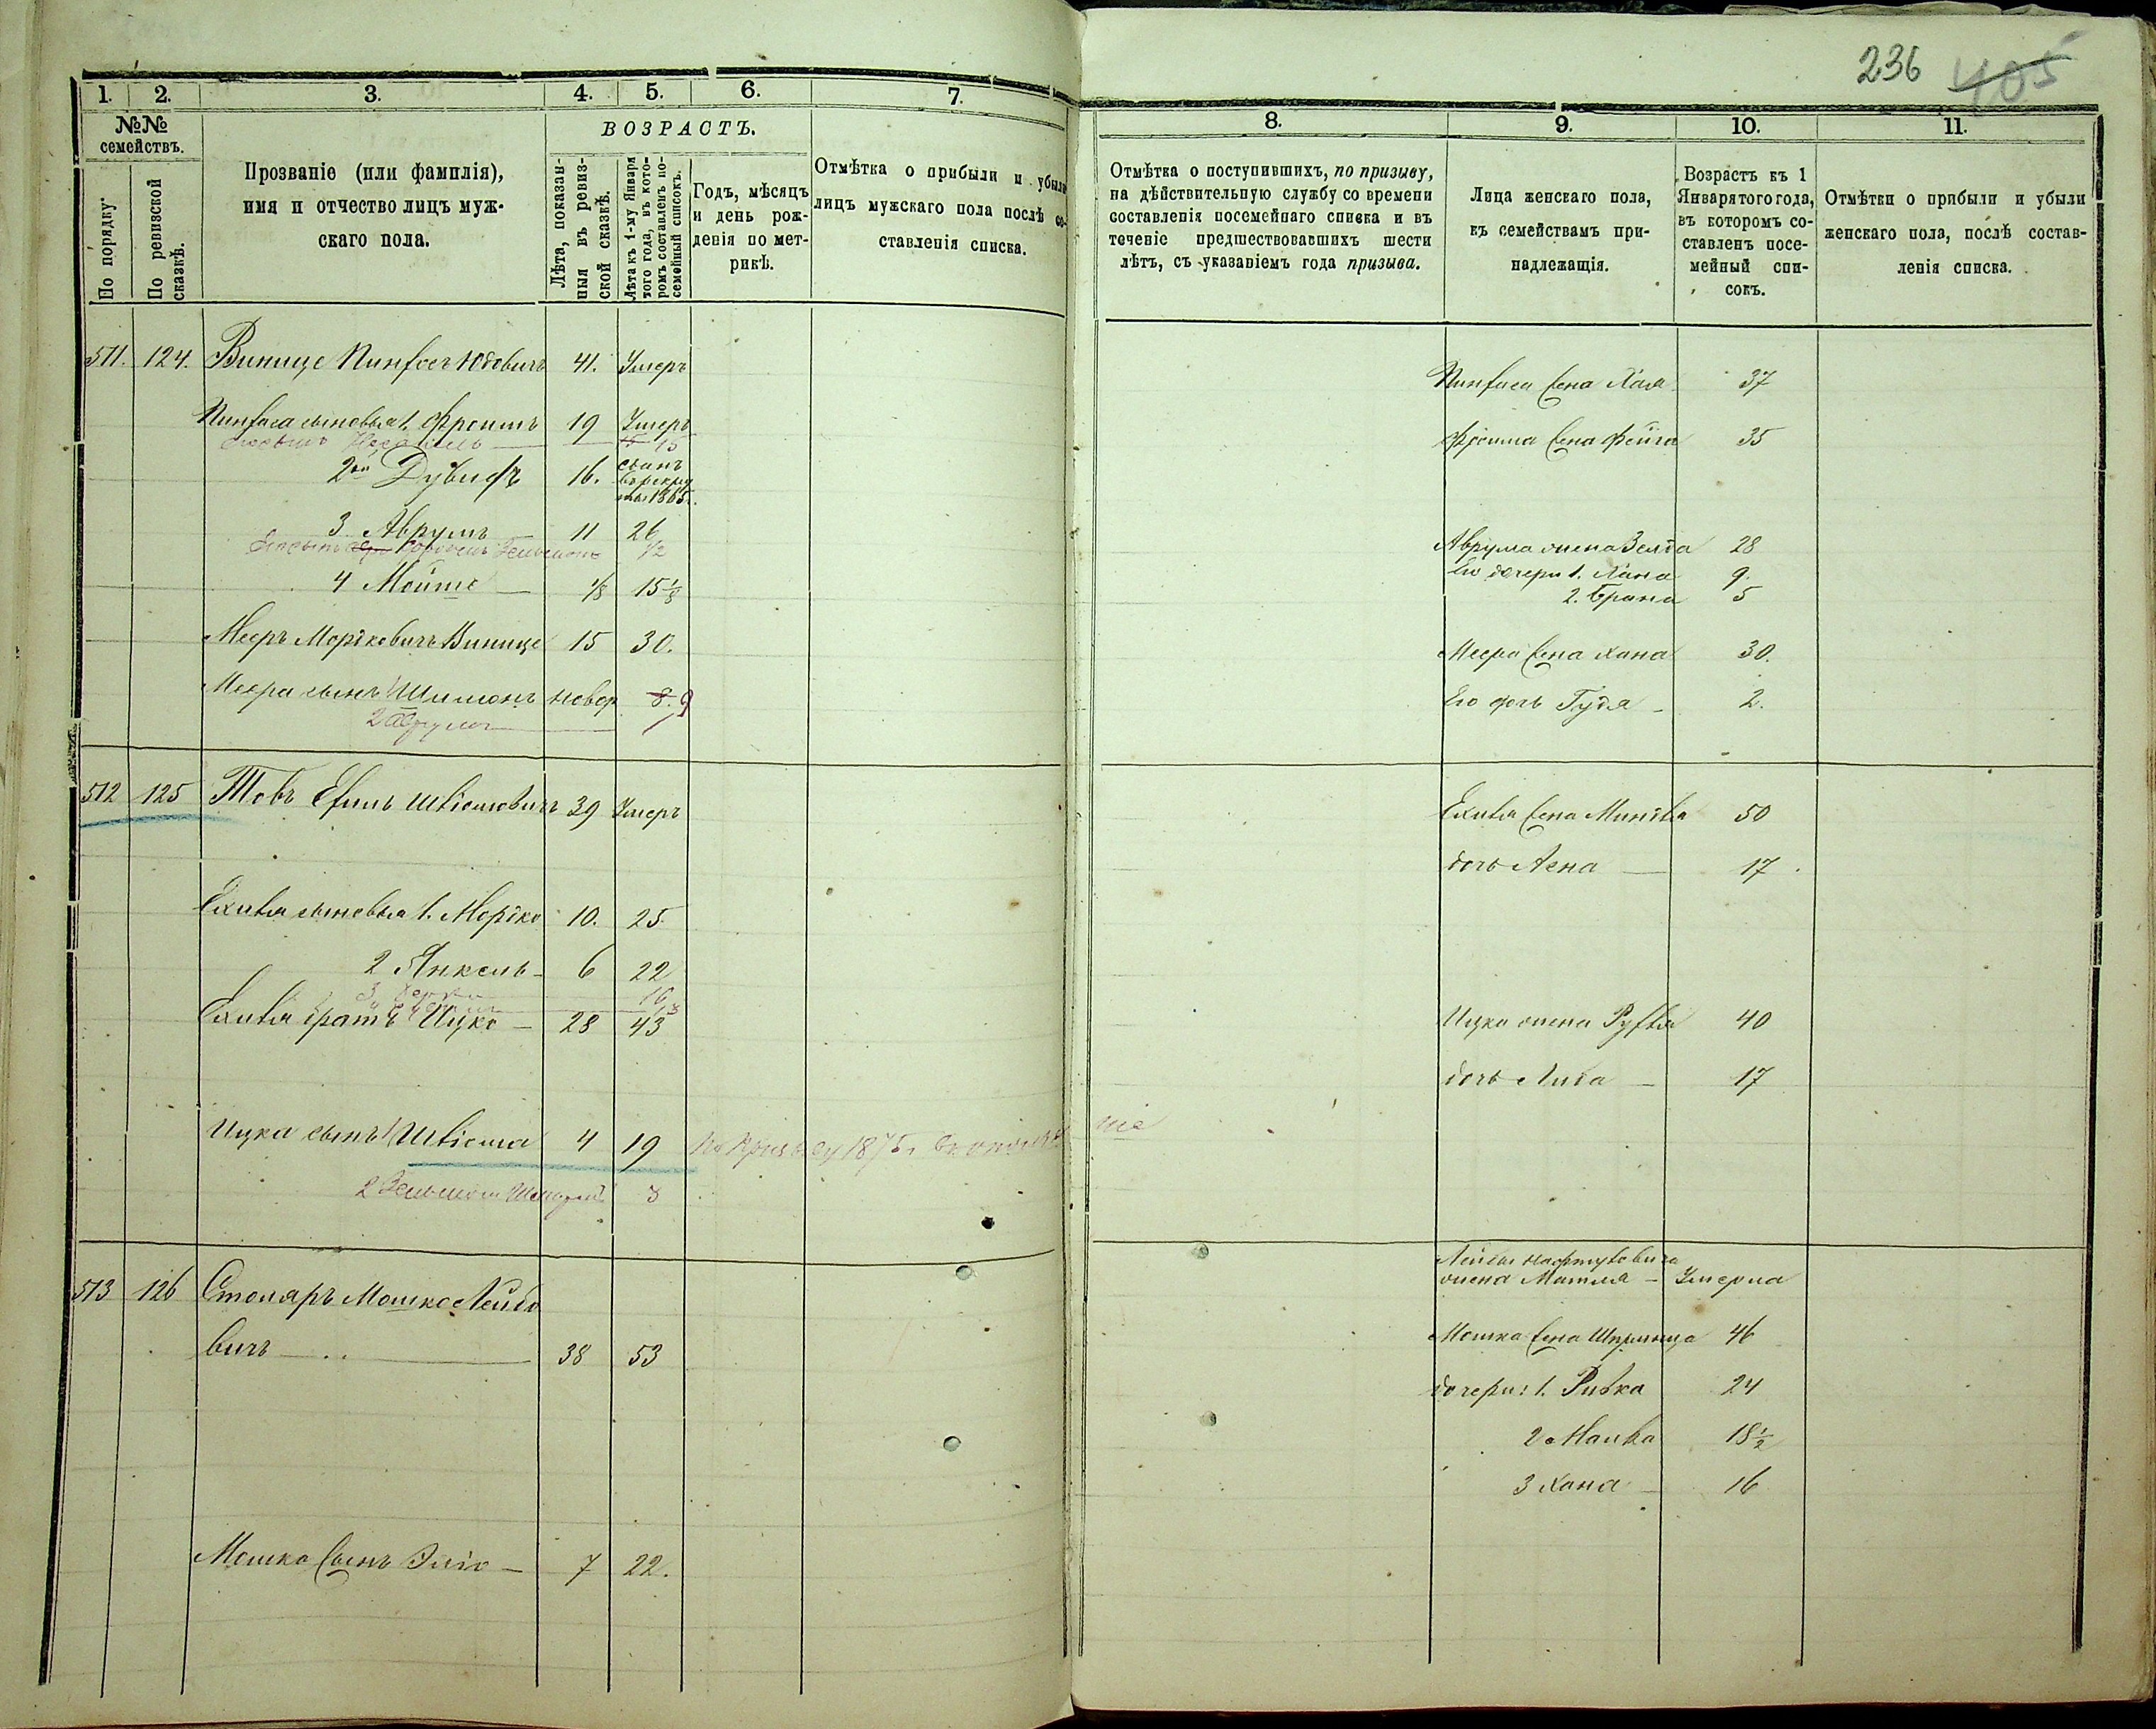 236 405
1. 2. 3. 4. 5. 6. 7.
№№ семействъ.
По порядку.
По ревизской сказкѣ.
Прозваніе (или фамилія),
имя и отчество лицъ муж-
скаго пола.
ВОЗРАСТЪ.
Лѣта, показан-
ныя въ ревиз-
ской сказкѣ.
Лѣта къ 1-му Января
того года, въ кото-
ромъ составленъ по-
семейный списокъ.
Годъ, мѣсяцъ
и день рож-
денія по мет-
рикѣ.
Отмѣтка о прибыли и убыли
лицъ мужскаго пола послѣ со-
ставленія списка.
511. 124. Винице Пинхосъ Юдовичъ 41. Умеръ
Пинхаса сыновья 1. Фроимъ 19 Умеръ
15
2й Дувидъ 16. сданъ
въ рекру
ты 1865г.
3 Аврумъ 11 26
1/2
4 Мойше 1/8 15 1/8
Мееръ Мордковичъ Винице 15 30.
Меера сынъ 1 Шимонъ новор 8. 9
2 Аврумъ
512 125 Товъ Ехиль Шліомовичъ 39 Умеръ
Ехиля сыновья 1. Мордко 10. 25
2 Янкель 6 22
3 16
Ехиля братъ Ицко 28 43
Ицка сынъ 1 Шліома 4 19 По призыву 1875г. въ ополче
ніе
2 8
513 126 Столяръ Мошко Лейбо
вичъ 38 53
Мошка Сынъ Эліо 7 22.
8. 9. 10. 11.
Отмѣтка о поступившихъ, по призыву,
на дѣйствительную службу со времени
составленія посемейнаго списка и въ
теченіе предшествовавшихъ шести
лѣтъ, съ указаніемъ года призыва.
Лица женскаго пола,
къ семействамъ при-
надлежащія.
Возрастъ къ 1
Января того года,
въ которомъ со-
ставленъ посе-
мейный спи-
сокъ.
Отмѣтки о прибыли и убыли
женскаго пола, послѣ состав-
ленія списка.
Пинхаса жена Хая 37
Фроима жена Фейга 35
Аврума жена Зелда 28
Его дочери 1. Хана 9.
2. Брана 5
Меера жена Хана 30.
Его дочь Гудя 2.
Ехиля жена Миндля 50
дочь Лена 17
Ицка жена Рухля 40
дочь Либа 17
Лейбы Нафтуловича
жена Матля Умерла
Мошка жена Шпринца 46
дочери: 1. Ривка 24
2 Малка 18 1/2
3 Хана 16